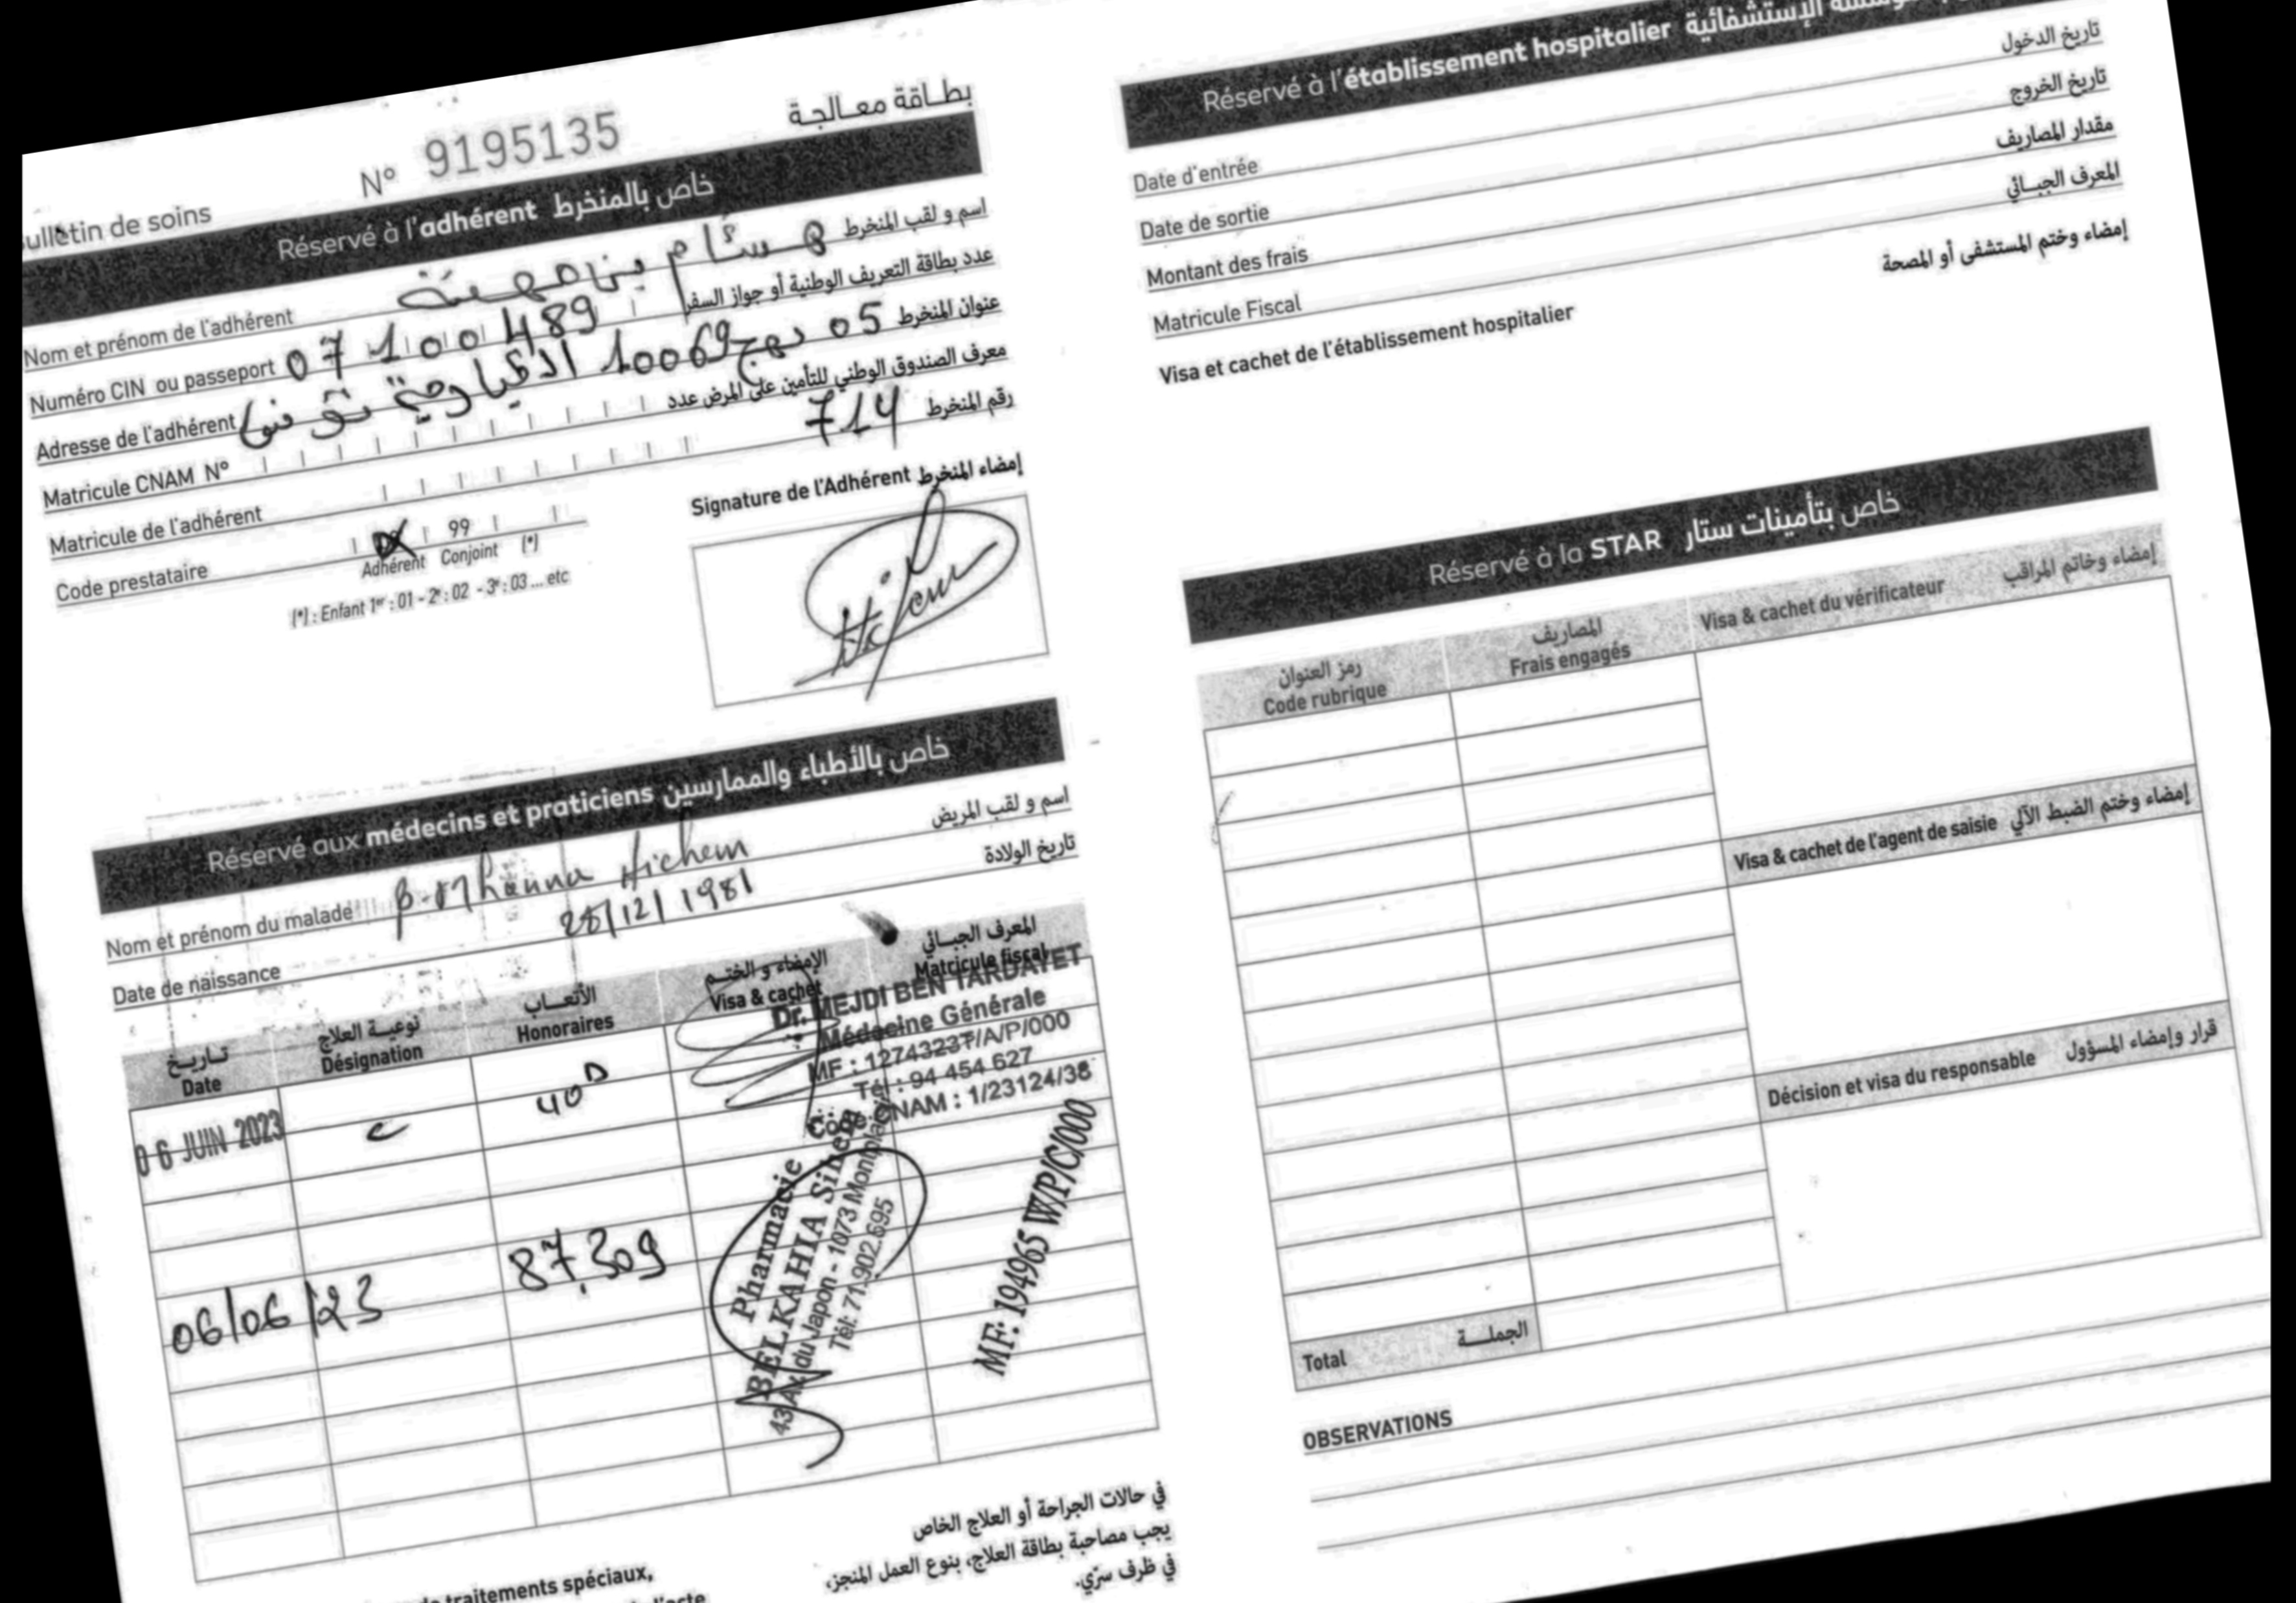 Bulletin de soins N° 9195135 بطـاقة معـالجـة
Réservé à l'adhérent خاص بالمنخرط
Nom et prénom de l'adhérent هشام بن مهنة اسم و لقب المنخرط
Numéro CIN ou passeport 07100489 عدد بطاقة التعريف الوطنية أو جواز السفر
Adresse de l'adhérent 05 نهج 10069 تونس عنوان المنخرط
Matricule CNAM N° معرف الصندوق الوطني للتأمين على المرض عدد
Matricule de l'adhérent 714 رقم المنخرط
Code prestataire 99
Adhérent Conjoint (*)
(*) : Enfant 1er : 01 - 2e : 02 - 3e : 03 ... etc
Signature de l'Adhérent إمضاء المنخرط
Hichem
Réservé aux médecins et praticiens خاص بالأطباء والممارسين
Nom et prénom du malade B. Mhanna Hichem اسم و لقب المريض
Date de naissance 28/12/1981 تاريخ الولادة
تـاريـخ نوعيـة العلاج الأتعـــاب الإمضاء و الختـم المعرف الجبــائي
Date Désignation Honoraires Visa & cachet Matricule fiscal
06 JUIN 2023 c 40D
Dr. MEJDI BEN TARDAYET
Médecine Générale
MF : 1274323T/A/P/000
Tél : 94 454 627
Code CNAM : 1/23124/38
06/06/23 87,309
Pharmacie
BELKAHIA Sihem
43 Av. du Japon - 1073 Montplaisir
Tél: 71.902.695
MF: 194965 W/P/C/000
traitements spéciaux,
l'acte
في حالات الجراحة أو العلاج الخاص
يجب مصاحبة بطاقة العلاج، بنوع العمل المنجز،
في ظرف سرّي.
Réservé à l'établissement hospitalier الإستشفائية
Date d'entrée تاريخ الدخول
Date de sortie تاريخ الخروج
Montant des frais مقدار المصاريف
Matricule Fiscal المعرف الجبــائي
Visa et cachet de l'établissement hospitalier إمضاء وختم المستشفى أو المصحة
Réservé à la STAR خاص بتأمينات ستار
رمز العنوان المصاريف
Code rubrique Frais engagés
Visa & cachet du vérificateur إمضاء وخاتم المراقب
Visa & cachet de l'agent de saisie إمضاء وختم الضبط الآلي
Décision et visa du responsable قرار وإمضاء المسؤول
Total الجملـــة
OBSERVATIONS